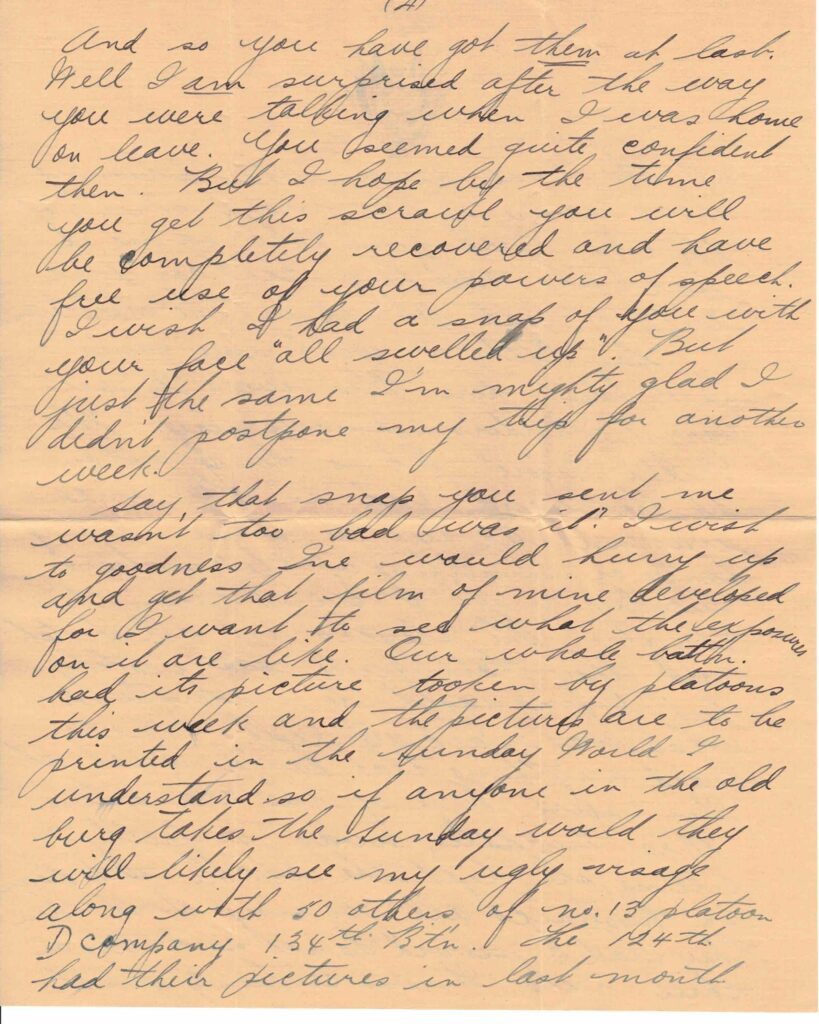 (4)
And so you have got them at last.
Well I am surprised after the way
you were talking when I was home
on leave. You seemed quite confident
then. But I hope by the time
you get this scrawl you will
be completely recovered and have
free use of your powers of speech.
I wish I had a snap of you with
your face "all swelled up". But
just the same I'm mighty glad I
didn't postpone my trip for another
week.
Say, that snap you sent me
wasn't too bad was it? I wish
to goodness Ine would hurry up
and get that film of mine developed
for I want to see what the exposures
on it are like. Our whole battn.
had its picture tooken by platoons
this week and the pictures are to be
printed in the Sunday World I
understand so if anyone in the old
burg takes the Sunday world they
will likely see my ugly visage
along with 50 others of no. 13 platoon
D company 134th Bt'n. The 124th
had their pictures in last month